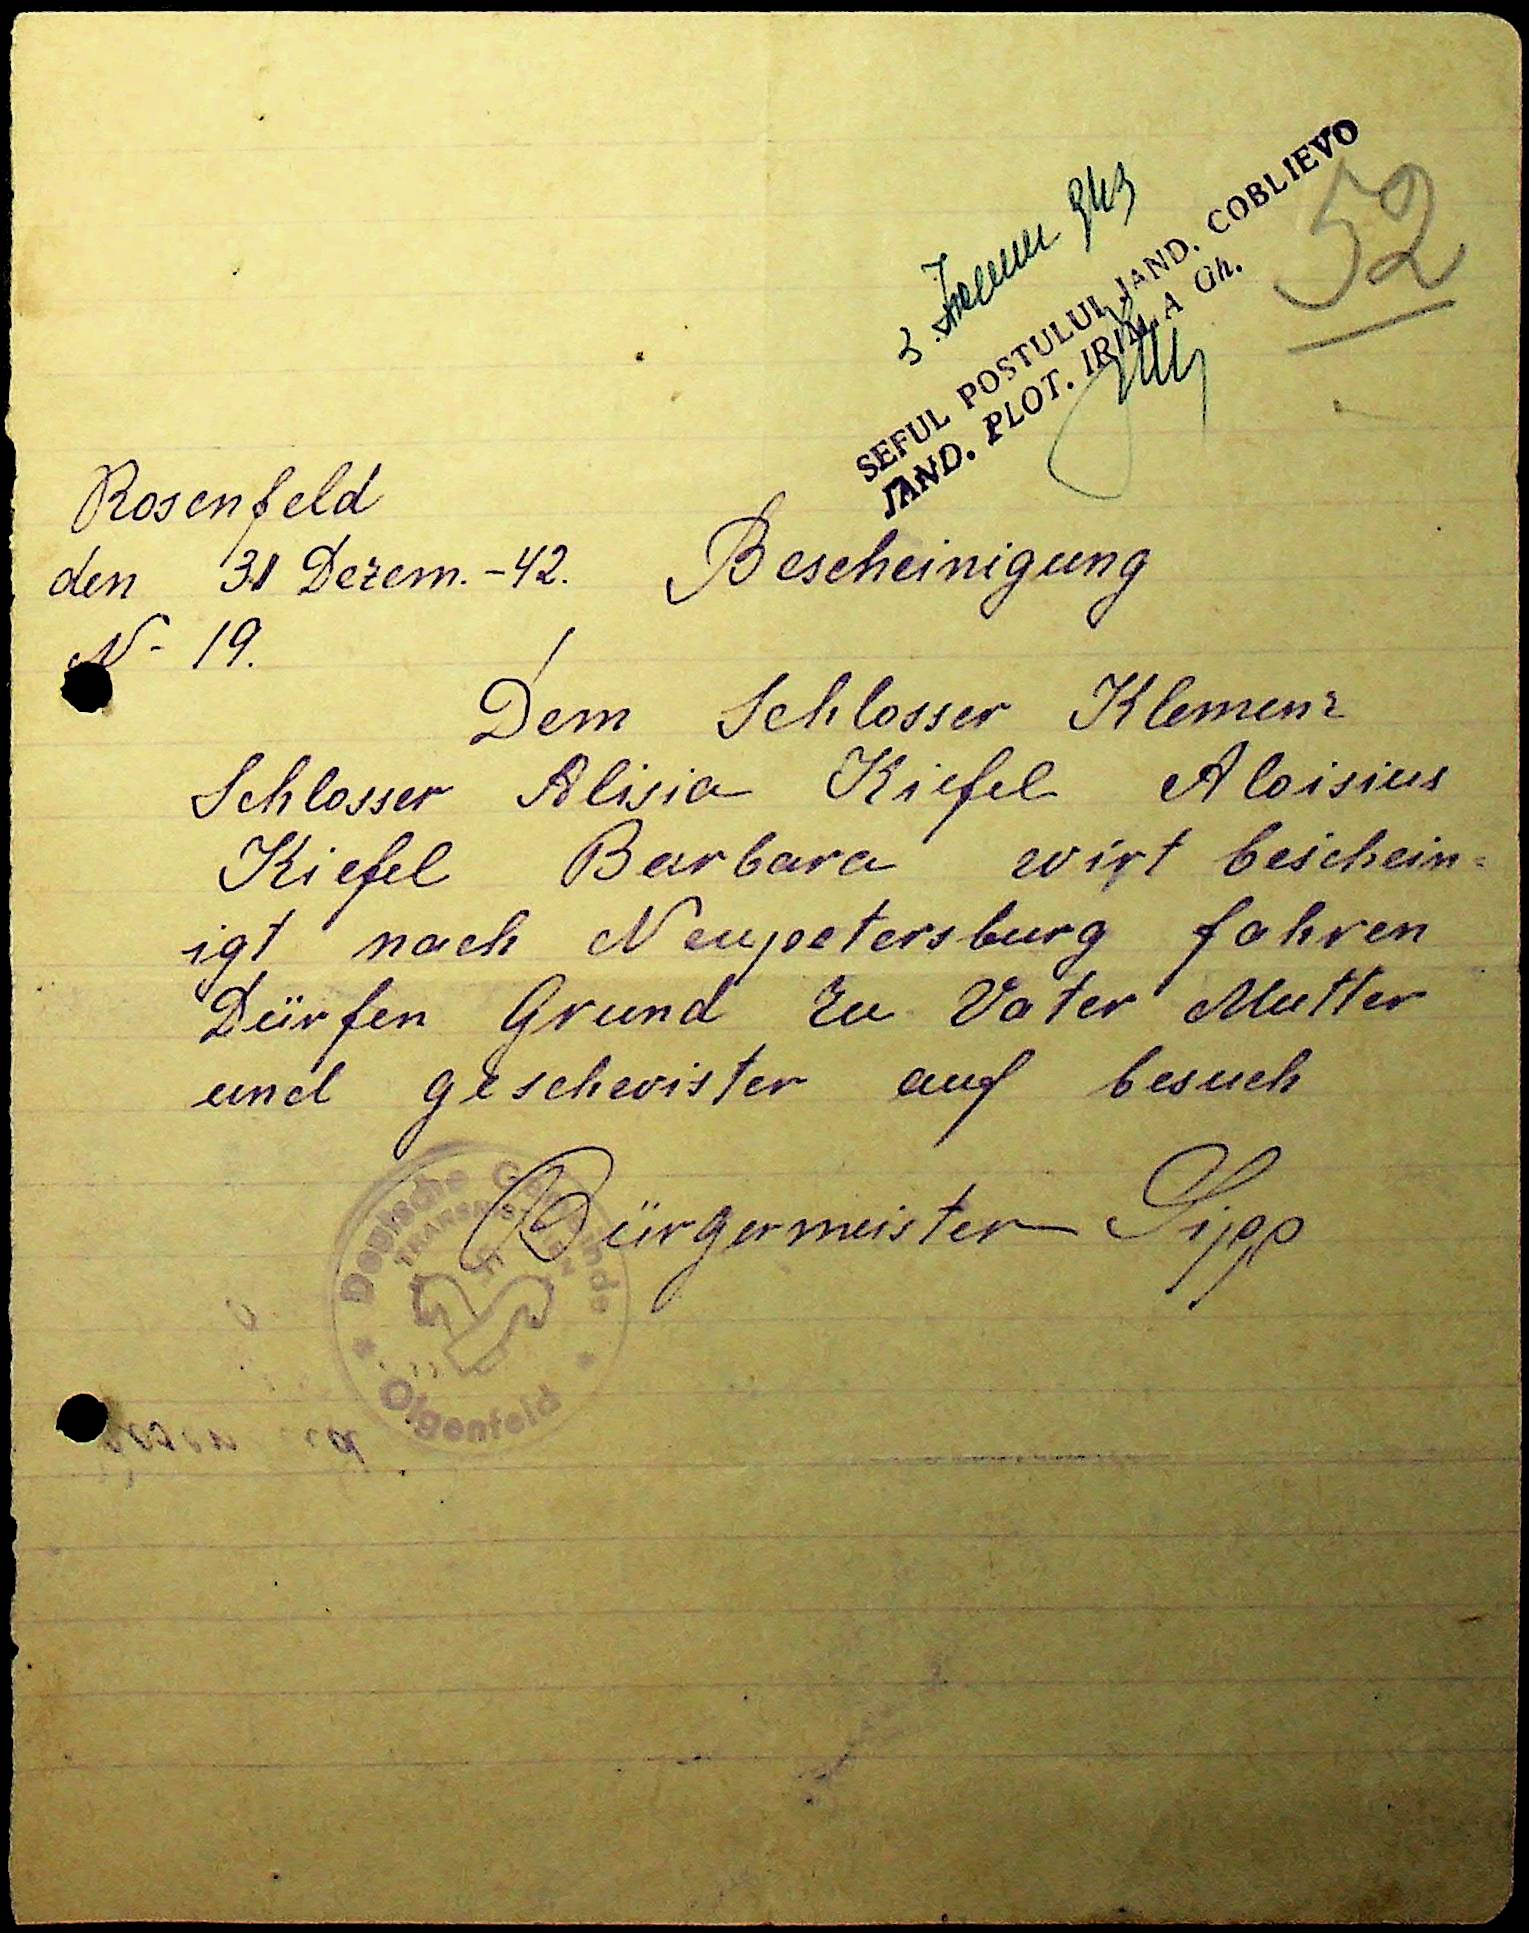 52
3 943
SEFUL POSTULUI JAND. COBLIEVO
JAND. PLOT. IRIMIA Gh.
Rosenfeld
den 31 Dezem. - 42. Bescheinigung
N - 19.
Dem Schlosser Klemenz
Schlosser Alisia Kiefel Aloisius
Kiefel Barbara wirt beschein=
igt nach Neupetersburg fahren
Dürfen Grund zu Vater Mutter
und geschwister auf besuch
Bürgermeister Sipp
Deutsche Gemeinde
TRANSNISTRIEN
Olgenfeld